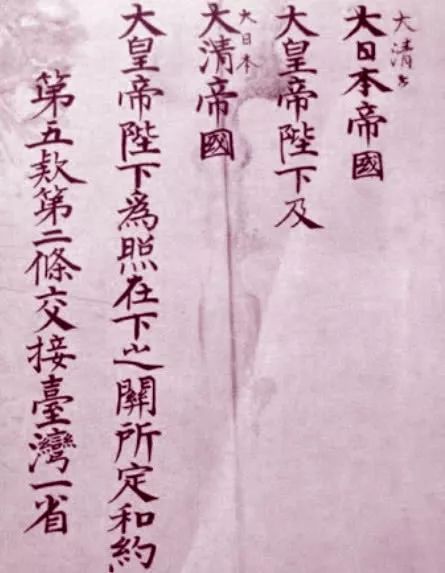 大清
大日本帝國
大皇帝陛下及
大日本
大清帝國
大皇帝陛下爲照在下之關所定和約
第五款第二條交接臺灣一省